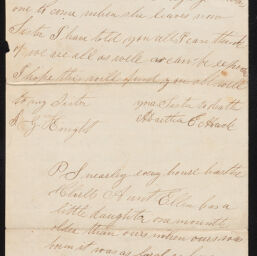 one to come when she leaves now
Sister I have told you all I can think
of we are all as well as can be
I hope this will find you all well
to my Sister your Sister to death
Knight Martha E
P S nearly every house has the
Aunt Ellen has a
little daughter one month
older than ours when ours was
born it was as